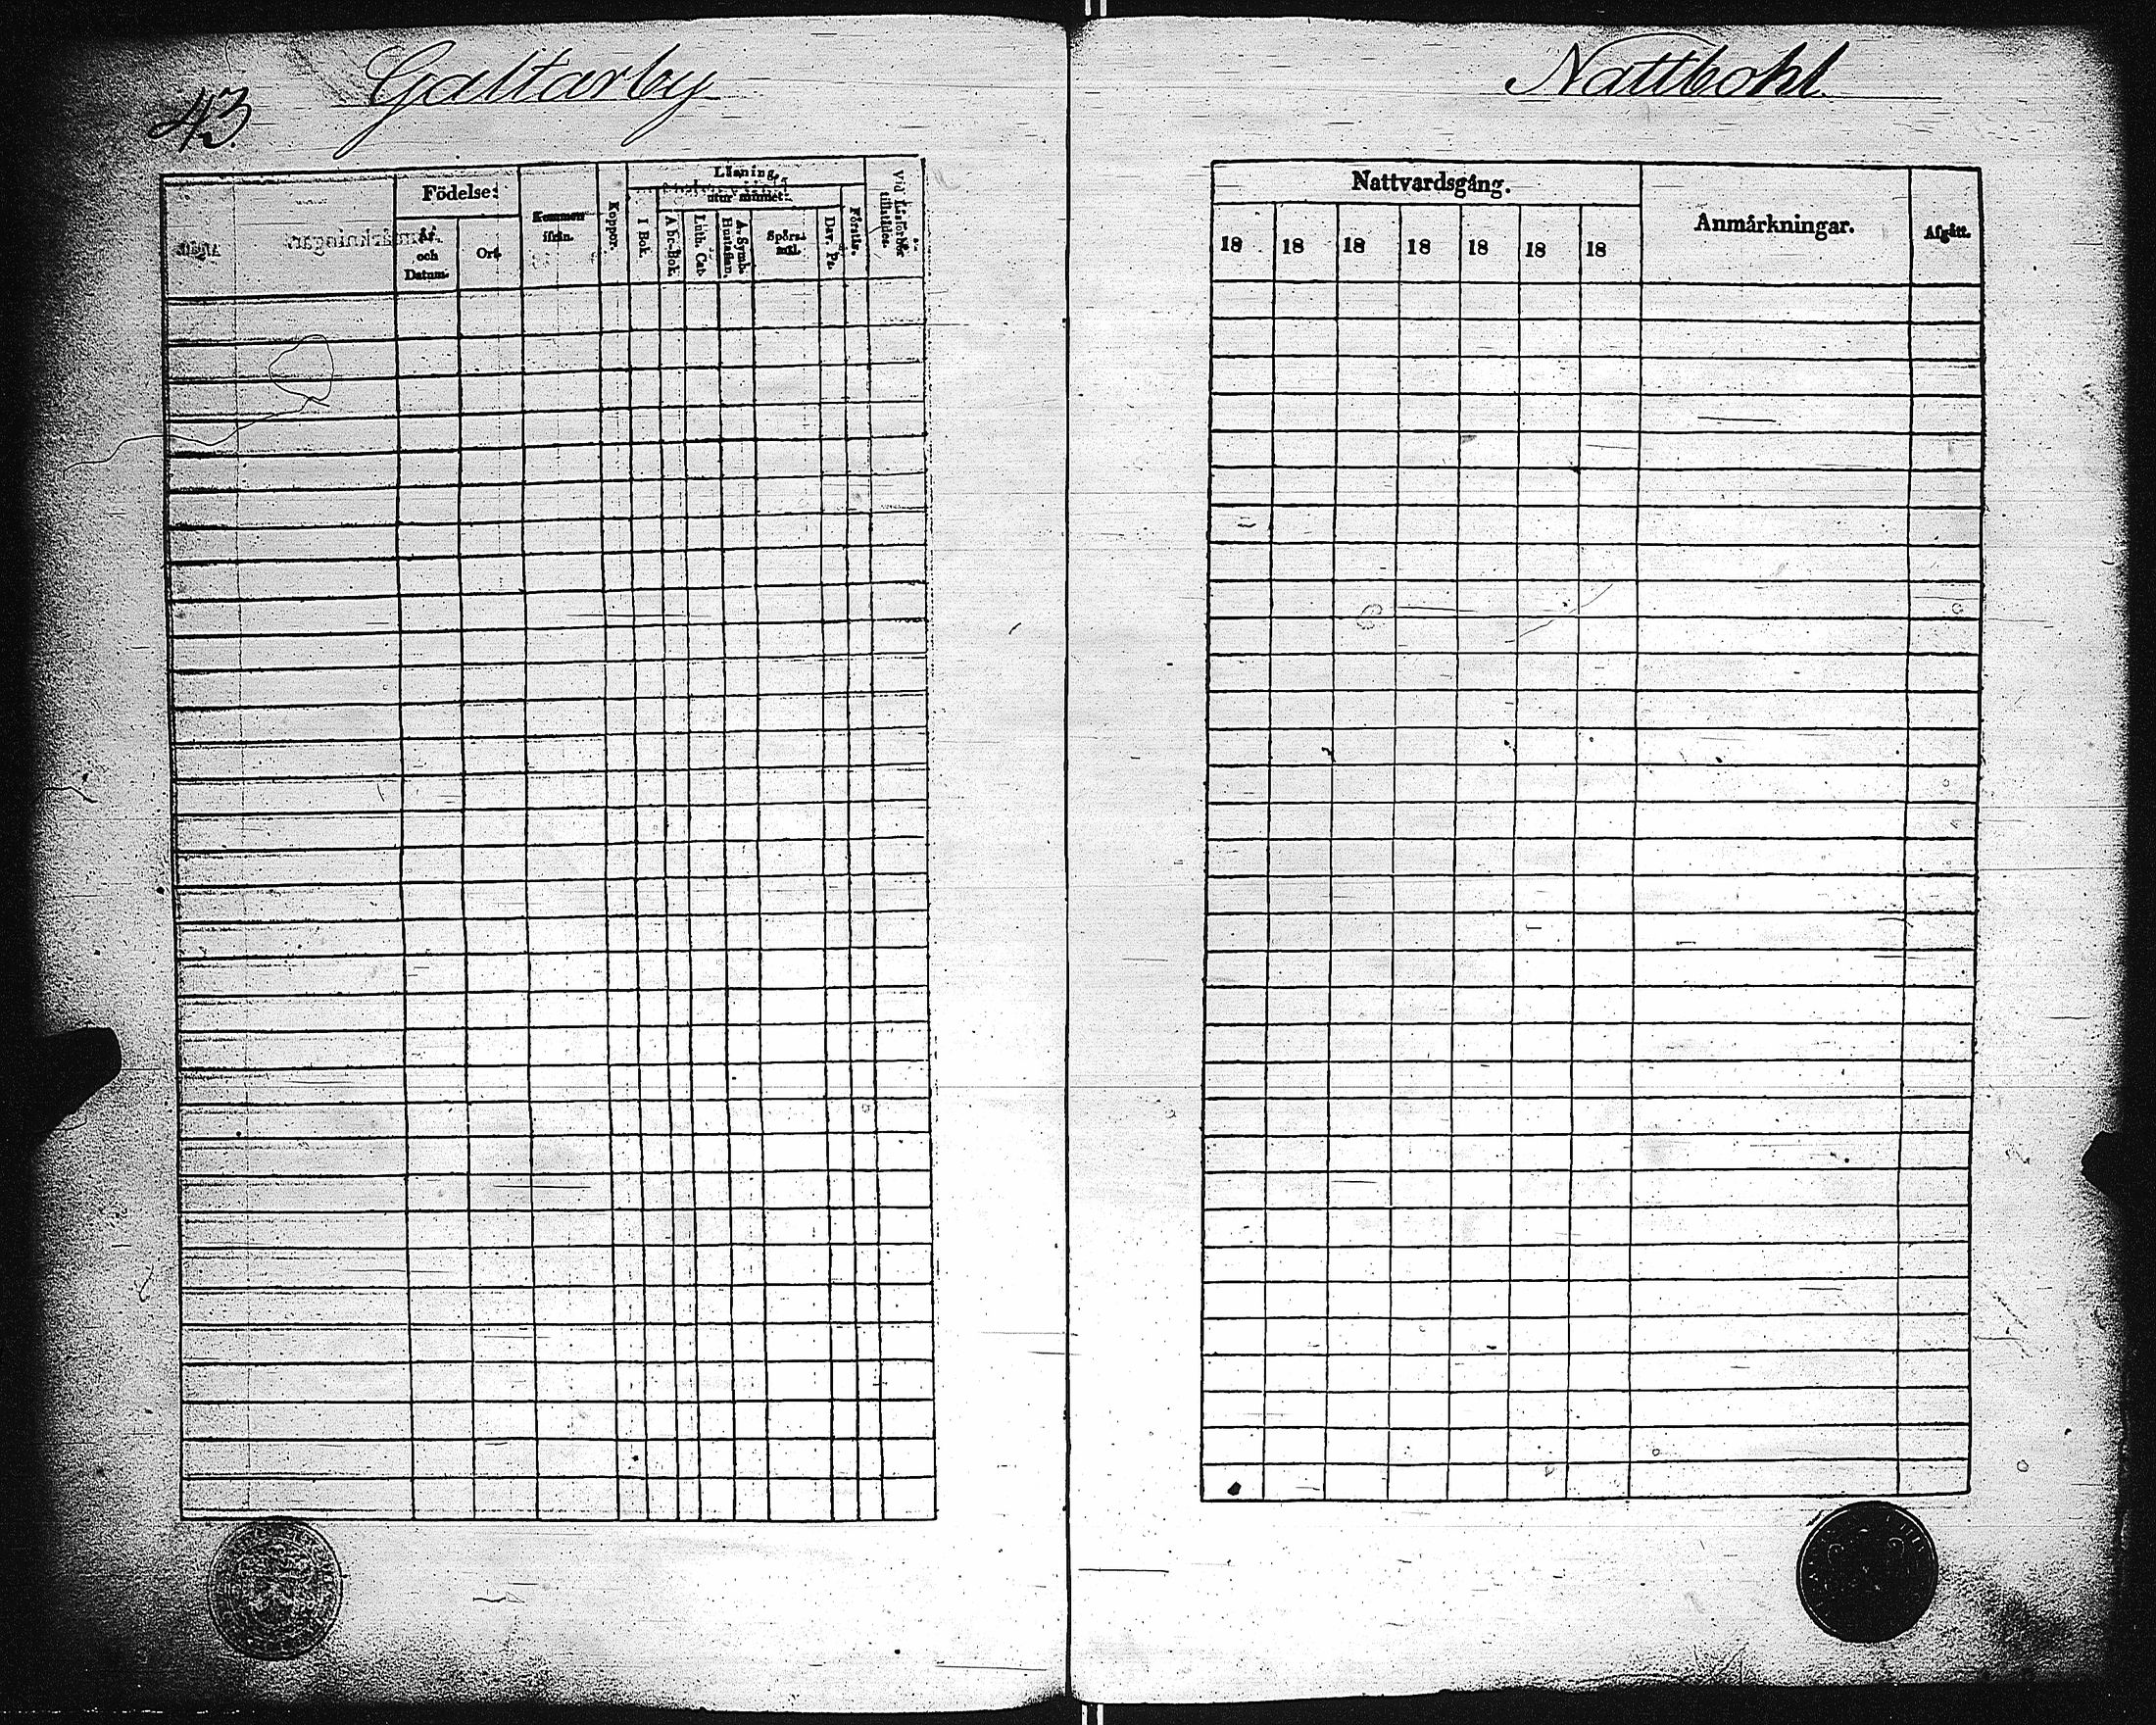 43.
Galtarby
Nattbohl.
Födelse:
År och Datum.
Ort.
Kommen ifrån.
Koppor.
Läsning,
utur minnet:
I Bok.
A bc-Bok.
Luth. Cat.
A. Symb. Hustaflan.
Spörsmål.
Dav. Ps.
Förstår.
Vid Läsförhör tillstädes.
Nattvardsgång.
18 18 18 18 18 18 18
Anmärkningar.
Afgått.